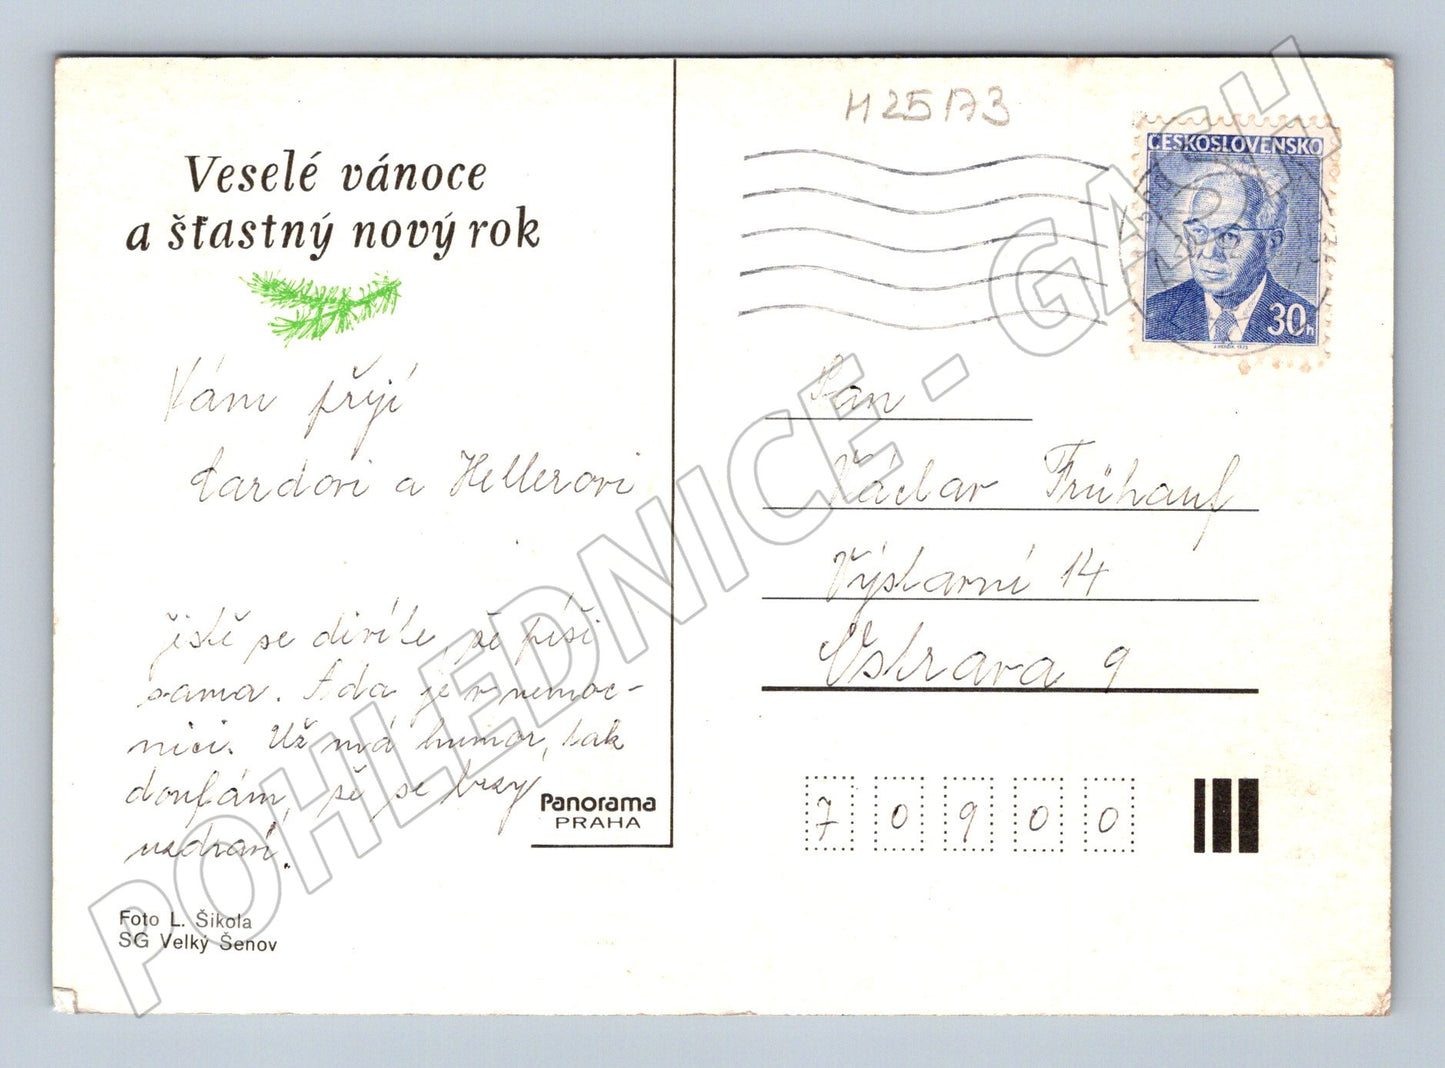 Veselé vánoce
a šťastný nový rok
Vám přejí
Lardovi a Hellerovi
jistě se divíte, že píši
sama. Ada je v nemoc-
nici. Už má humor, tak
doufám, že se brzy
uzdraví.
Panorama
PRAHA
Foto L. Šikola
SG Velký Šenov
H25173
ČESKOSLOVENSKO
30h
Pan
Václav Frühauf
Výstavní 14
Ostrava 9
7 0 9 0 0
POHLEDNICE - GASH